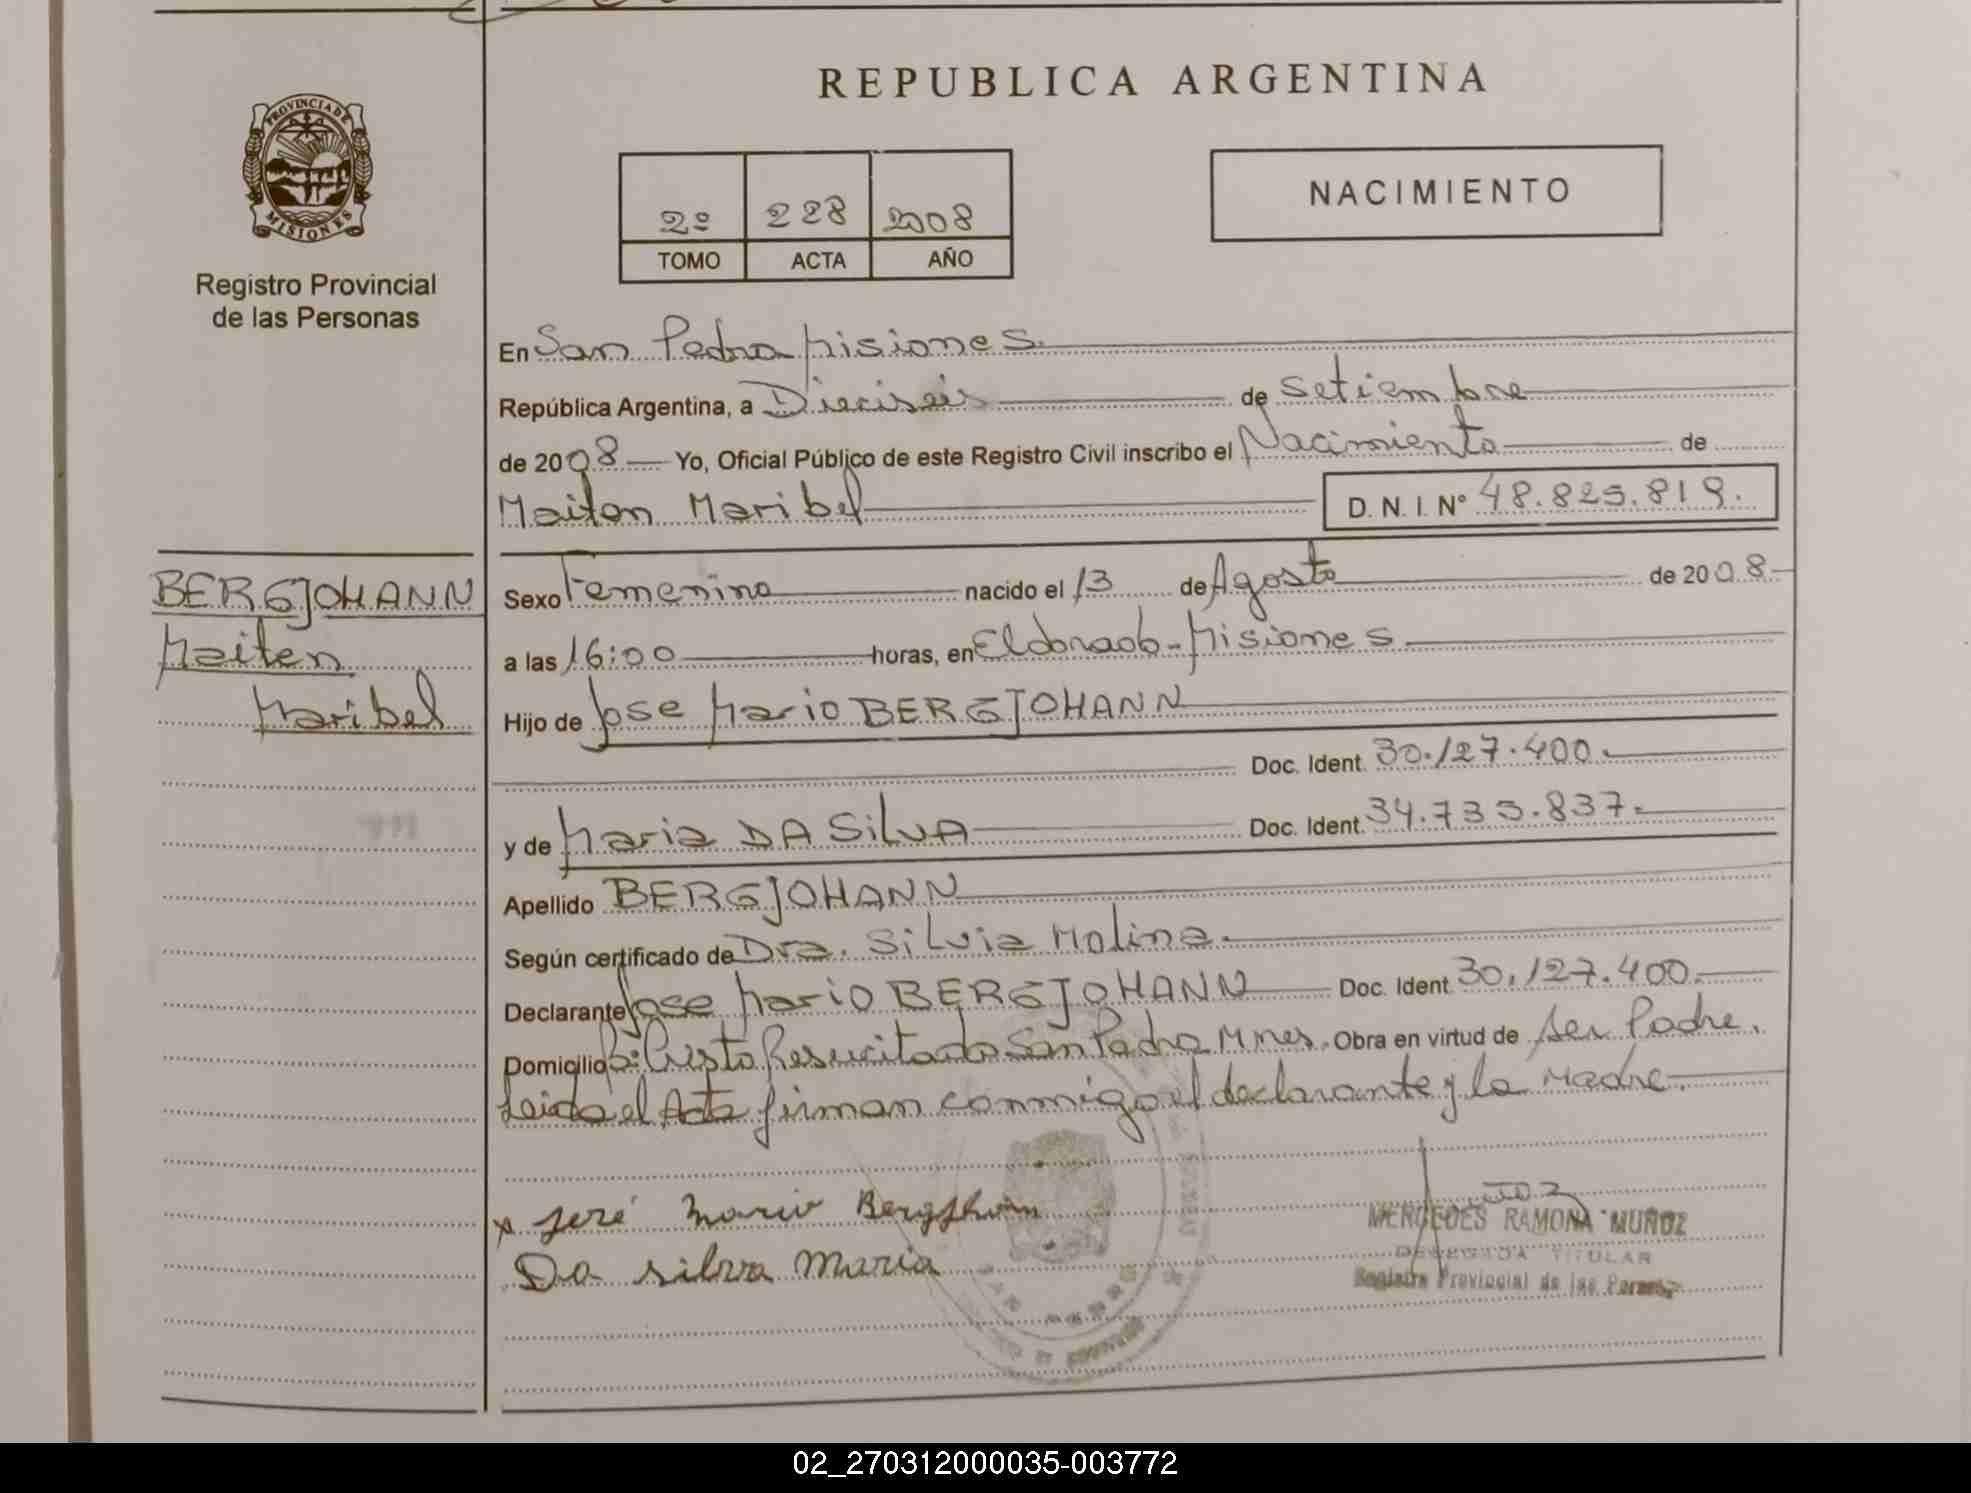 PROVINCIA DE
MISIONES
Registro Provincial
de las Personas
REPUBLICA ARGENTINA
2º 228 2008
TOMO ACTA AÑO
NACIMIENTO
En San Pedro Misiones.
República Argentina, a Dieciseis de Setiembre
de 2008 Yo, Oficial Público de este Registro Civil inscribo el Nacimiento de
Maiten Maribel D. N. I. Nº 48.825.819.
BERGJOHANN
Maiten
Maribel
Sexo Femenino nacido el 13 de Agosto de 2008
a las 16:00 horas, en Eldorado-Misiones
Hijo de Jose Mario BERGJOHANN
Doc. Ident. 30.127.400.
y de Maria DA SILVA Doc. Ident. 34.735.837.
Apellido BERGJOHANN
Según certificado de Dra. Silvia Molina.
Declarante Jose Mario BERGJOHANN Doc. Ident. 30.127.400.
Domicilio Bº Cristo Resucitado San Pedro Mnes. Obra en virtud de Ser Padre.
Leida el Acta firman conmigo el declarante y la Madre.
x José Mario Bergjhoan
Da silva Maria
MERCEDES RAMONA MUÑOZ
DELEGADA TITULAR
Registro Provincial de las Personas
02_270312000035-003772